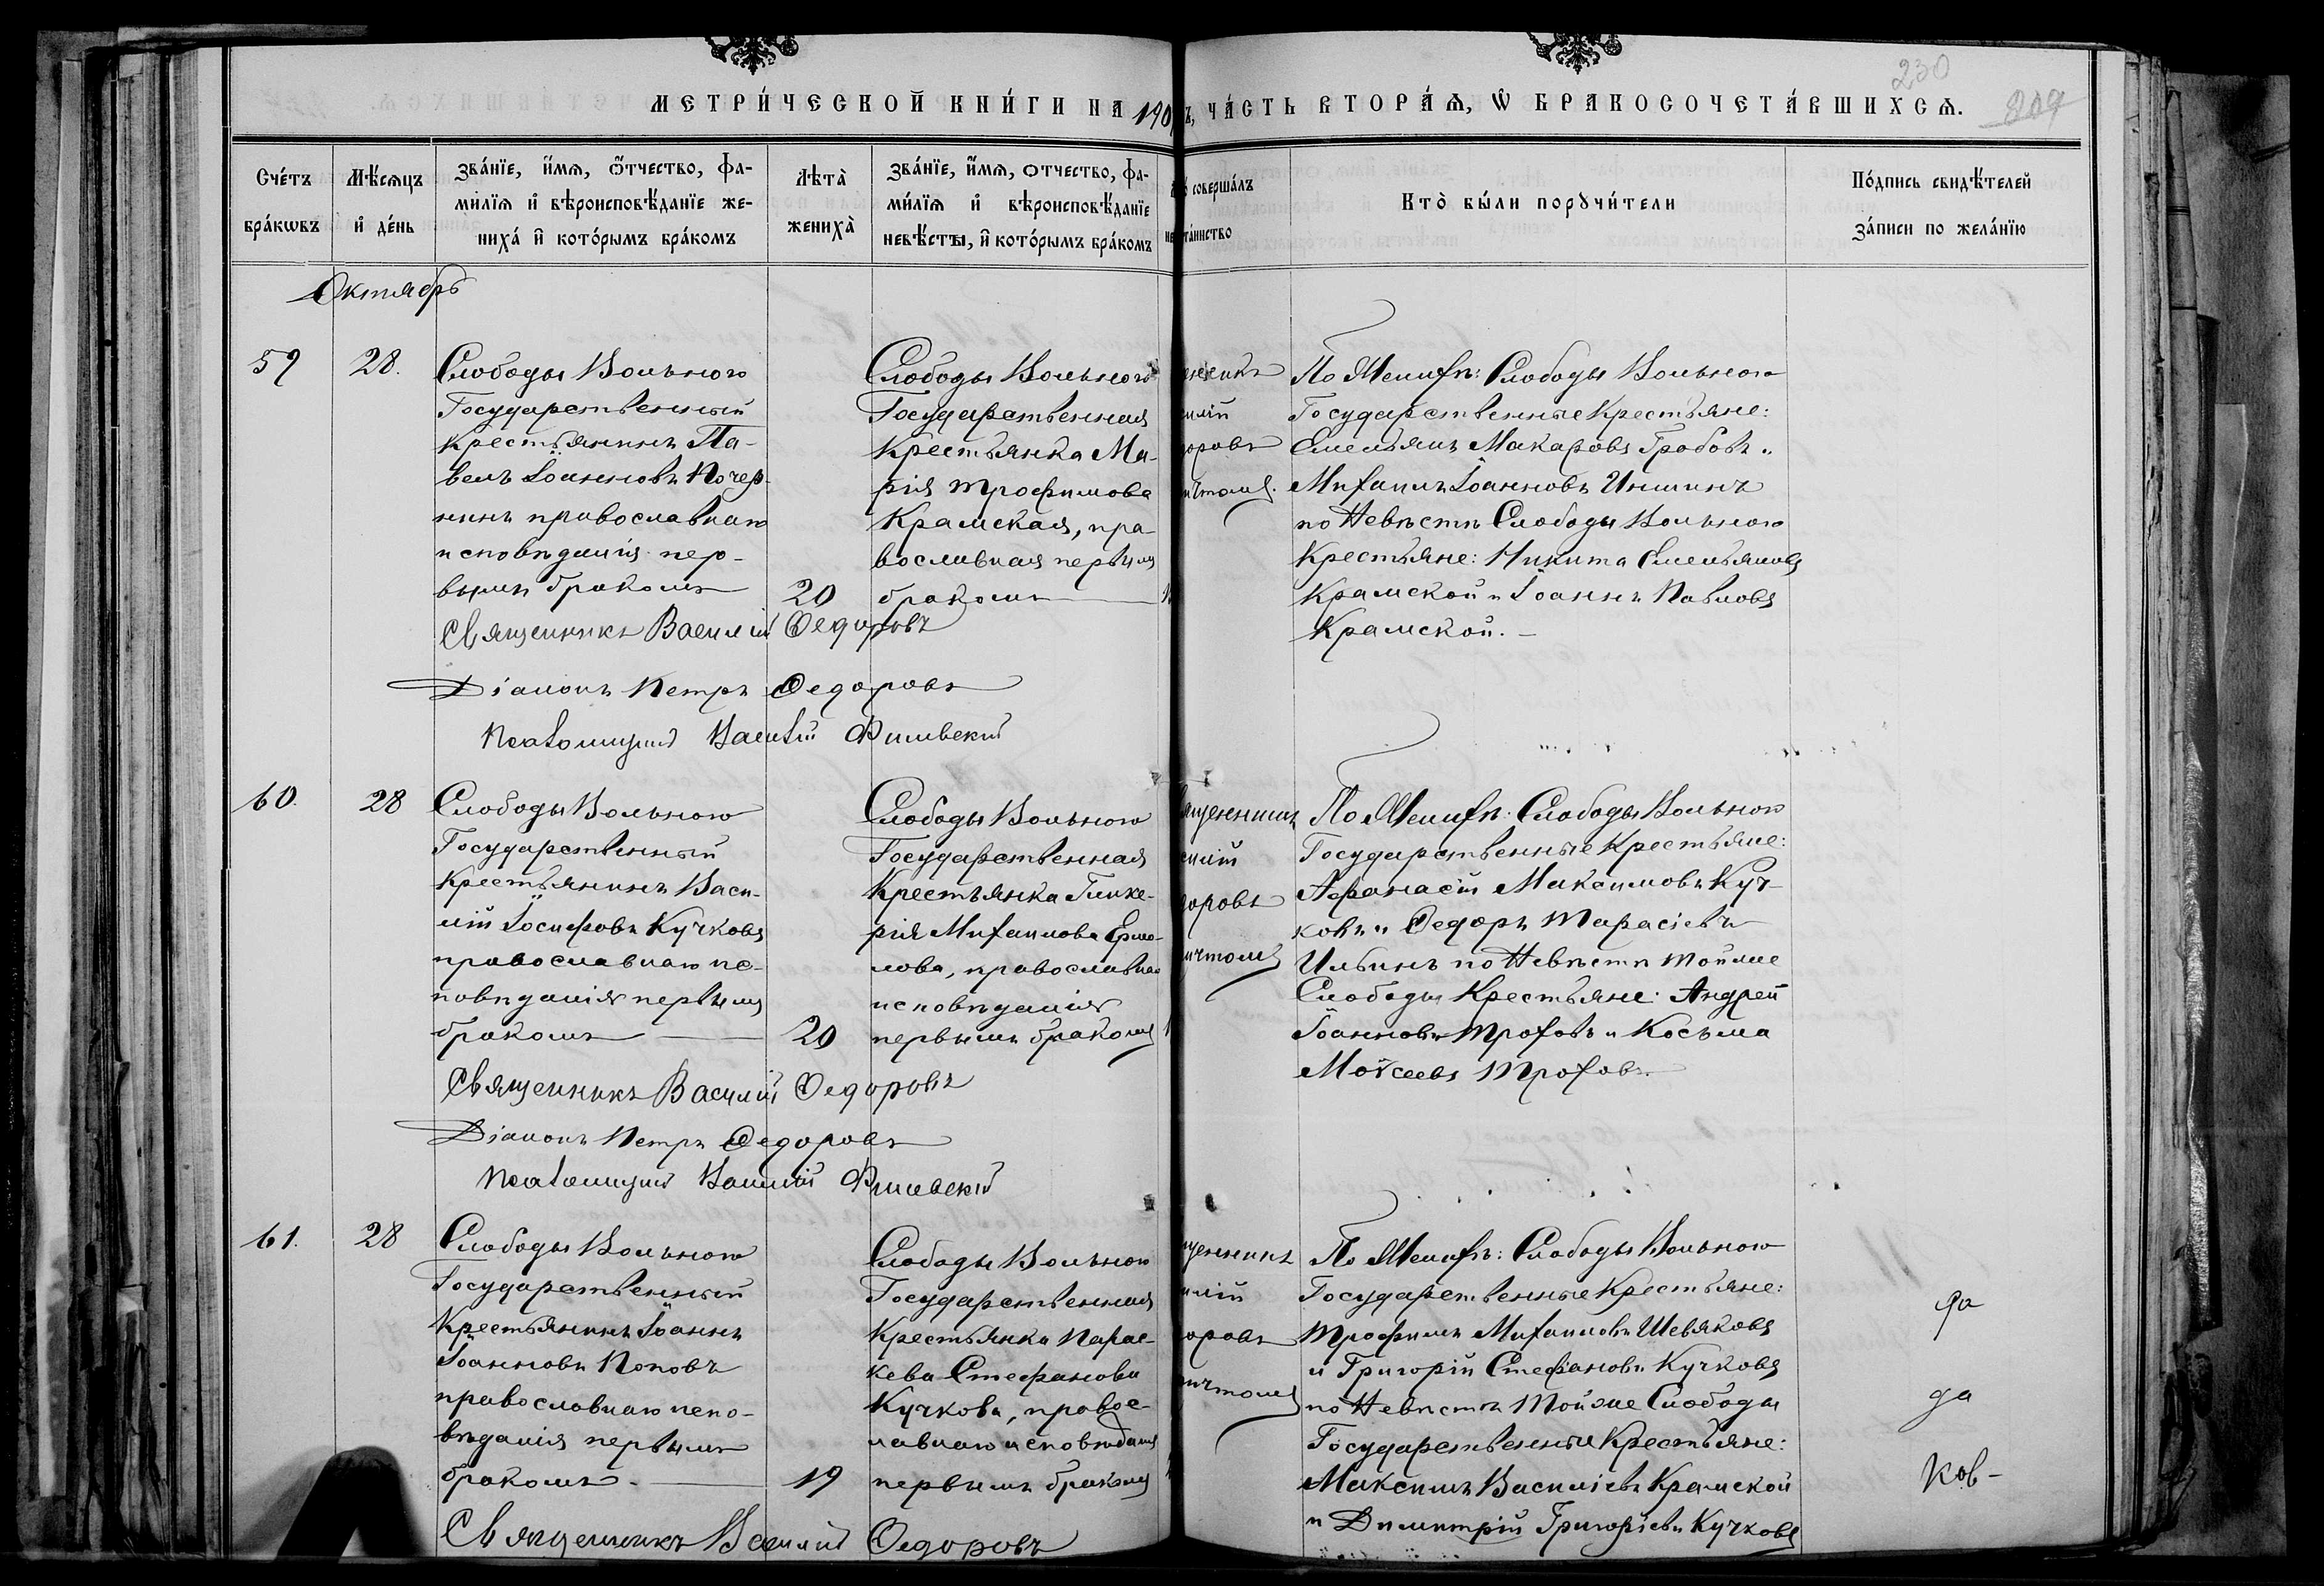 230
МЕТРИ́ЧЕСКОЙ КНИ́ГИ НА 190
Ъ, ЧА́СТЬ ВТОРА́Ѧ, Ѡ҆ БРАКОСОЧЕТА́ВШИХСѦ.
Сче́тъ
бра́кѡвъ
Мѣ́сѧцъ
и҆ де́нь
Зва́нїе, и҆́мѧ, ѻ҆́тчество, фа-
ми́лїѧ и҆ вѣроисповѣ́данїе же-
ниха́ и҆ кото́рымъ бра́комъ
Лѣта̀
жениха̀
Зва́нїе, и҆́мѧ, отчество, фа-
ми́лїѧ и҆ вѣроисповѣ́данїе
невѣ́сты, и҆ кото́рымъ бра́комъ
соверша́лъ
та́инство
Кто̀ бы́ли порꙋчи́тели
По́дпись свидѣ́телей
за́писи по жела́нїю
Октябрь
59
28.
Слободы Вольного
Государственный
Крестьянинъ Па-
велъ Іоанновъ Почер-
нинъ православнаго
исповѣданія пер-
вымъ бракомъ
20
Слободы Вольного
Государственная
Крестьянка Ма-
рія Трофимова
Крамская, пра-
вославная первымъ
бракомъ
енникъ
силій
доровъ
ичтомъ.
По Женихѣ: Слободы Вольного
Государственные Крестьяне:
Емельянъ Макаровъ Гробовъ и
Михаилъ Іоанновъ Иншинъ
по Невѣстѣ Слободы Вольного
Крестьяне: Никита Емельяновъ
Крамской и Іоаннъ Павловъ
Крамской. —
Священникъ Василій Ѳедоровъ
Діаконъ Петръ Ѳедоровъ
Псаломщикъ Василій Филевскій
60.
28
Слободы Вольного
Государственный
Крестьянинъ Васи-
лій Іосифовъ Кучковъ
православнаго ис-
повѣданія первымъ
бракомъ
20
Слободы Вольного
Государственная
Крестьянка Глике-
рія Михаилова Ермо-
лова, православнаго
исповѣданія
первымъ бракомъ
ященникъ
силій
доровъ
ичтомъ
По Женихѣ: Слободы Вольного
Государственные Крестьяне:
Афанасій Максимовъ Куч-
ковъ и Ѳедоръ Тарасіевъ
Ильинъ по Невѣстѣ той же
Слободы Крестьяне: Андрей
Іоанновъ Трофовъ и Косьма
Моѵсеевъ Трофовъ.
Священникъ Василій Ѳедоровъ
Діаконъ Петръ Ѳедоровъ
Псаломщикъ Василій Филевскій
61.
28
Слободы Вольного
Государственный
Крестьянинъ Іоаннъ
Іоанновъ Поповъ
православнаго испо-
вѣданія первымъ
бракомъ.
19
Слободы Вольной
Государственная
Крестьянка Парас-
кева Стефанова
Кучкова, правос-
лавнаго исповѣданія
первымъ бракомъ
щенникъ
илій
доровъ
ичтомъ
По Женихѣ: Слободы Вольного
Государственные Крестьяне:
Трофимъ Михаиловъ Шевяковъ
и Григорій Стефановъ Кучковъ
по Невѣстѣ той же Слободы
Государственные Крестьяне:
Максимъ Василіевъ Крамской
и Димитрій Григоріевъ Кучковъ
да
Ков-
Священникъ Василій Ѳедоровъ